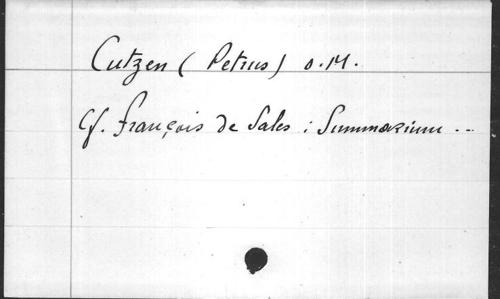 Cutzen (Petrus) O.M.
Cf. François de Sales : Summarium ..